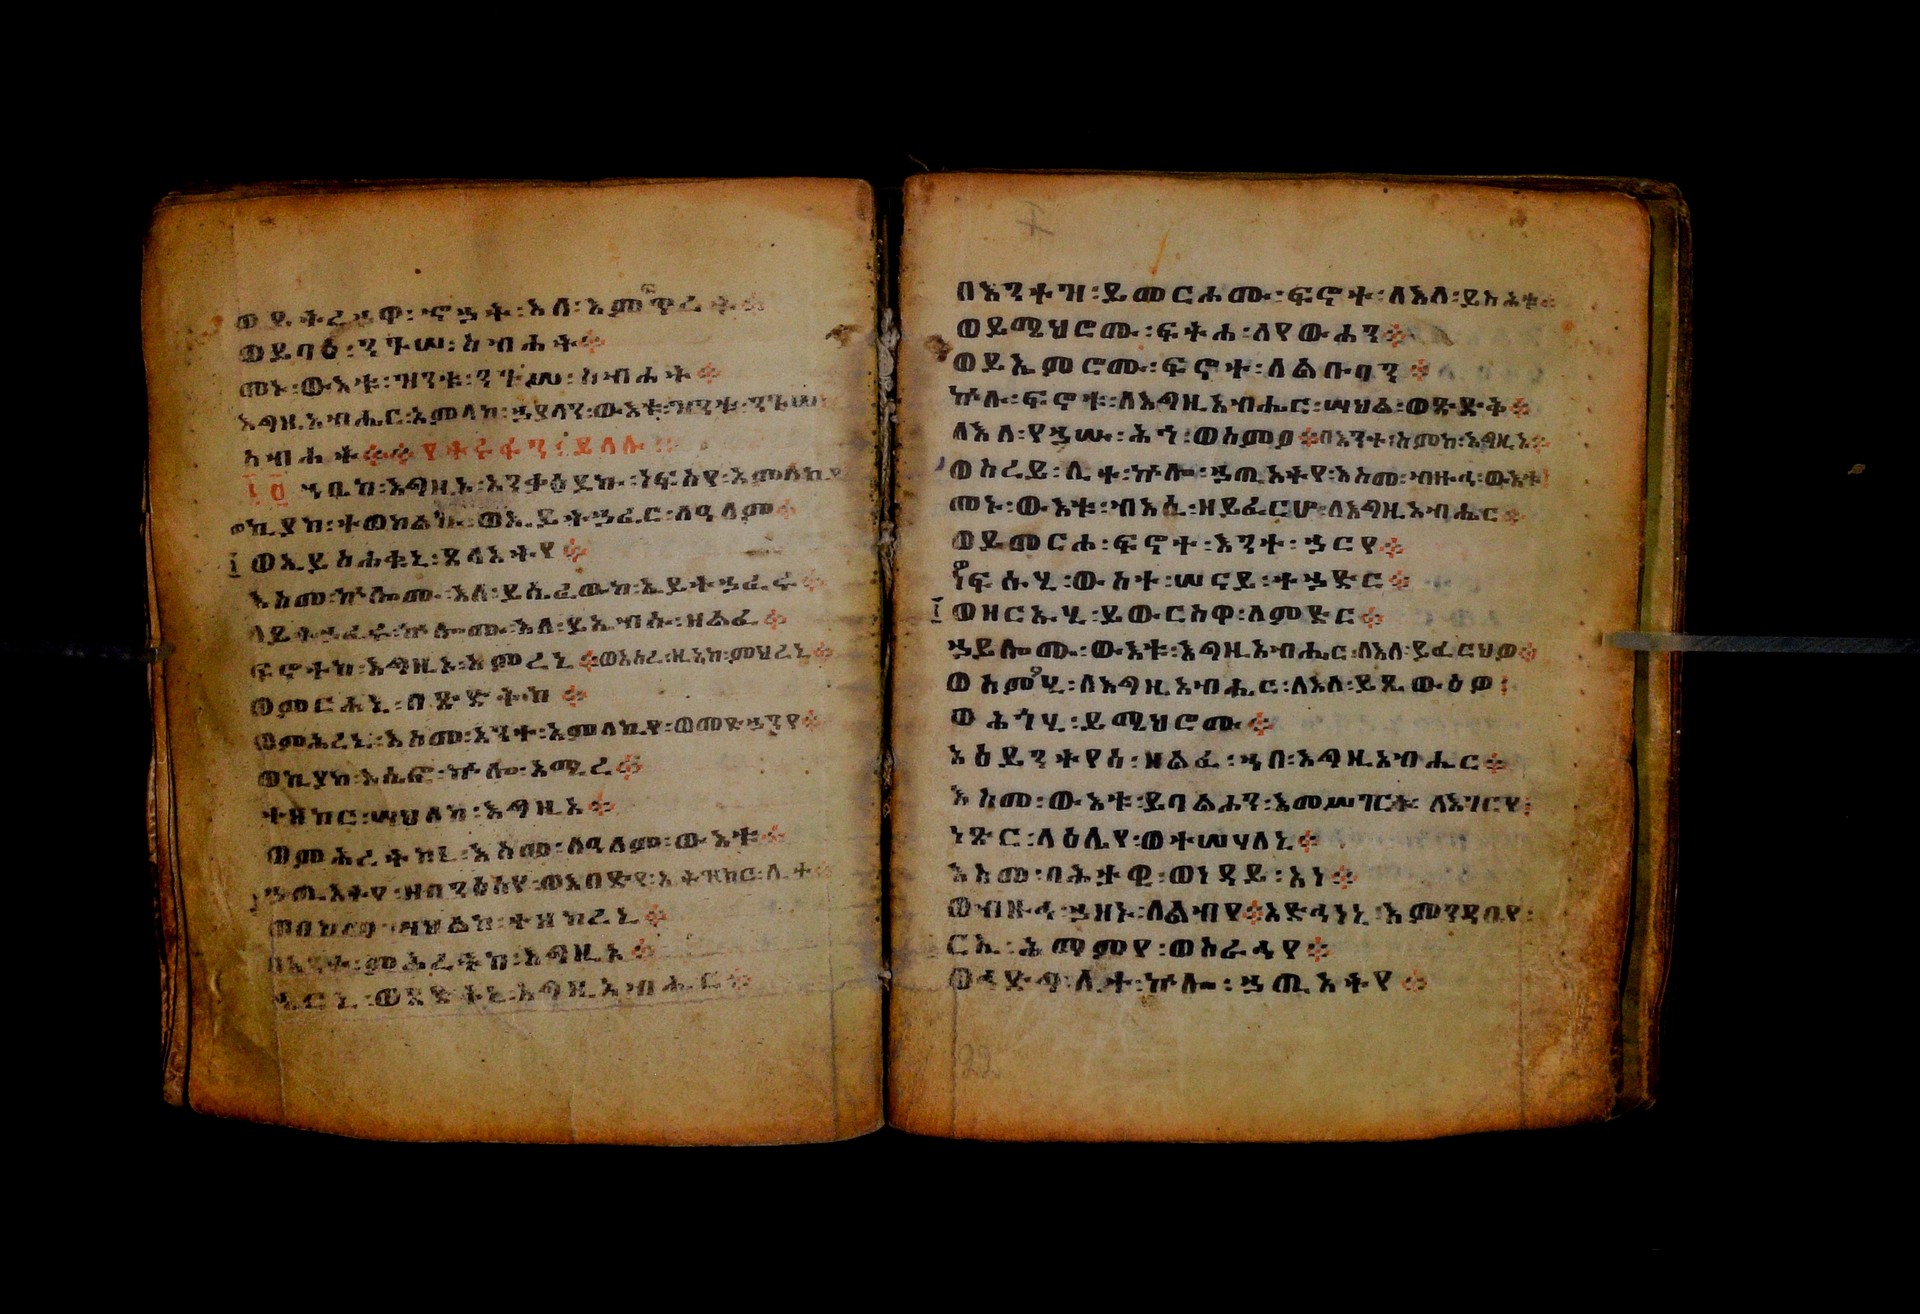 ወይትረኀዋ፡ኆኅት፡እለ፡እምፍጥረት።
ወይባዕ፡ንጉሠ፡ስብሐት።
መኑ፡ውእቱ፡ዝንቱ፡ንጉሠ፡ስብሐት።
እግዚአብሔር፡አምላከ፡ኀያላን፡ውእቱ፡ዝንቱ፡ንጉሠ፡
ስብሐት።።
ኀቤከ፡እግዚኦ፡አንቃዕዶኩ፡ነፍስየ፡አምላኪየ
ኪያከ፡ተወከልኩ፡ወኢይትኀፈር፡ለዓለም።
ወኢይስሐቁኒ፡ጸላእትየ።
እስመ፡ኵሎሙ፡እለ፡ይሴፈዉከ፡ኢይትኀፈሩ።
ለይትኀፈሩ፡ኵሎሙ፡እለ፡ይኤብሱ፡ዘልፈ።
ፍኖተከ፡እግዚኦ፡አምረኒ።ወአሰረ፡ዚአከ፡ምህረኒ።
ወምርሐኒ፡በጽድቅከ።
ወምሕረኒ፡እስመ፡አንተ፡አምላኪየ፡ወመድኀንየ።
ወኪያከ፡እሴፎ፡ኵሎ፡አሚረ።
ተዘከር፡ሣህለከ፡እግዚኦ።
ወምሕረትከኒ፡እስመ፡ለዓለም፡ውእቱ።
ኀጢአትየ፡ዘበንዕስየ፡ወእበድየ፡ኢትዝክር፡ሊተ።
ወበከመ፡ሣህልከ፡ተዘከረኒ።
በእንተ፡ምሕረትከ፡እግዚኦ።
ኄርኒ፡ወጻድቅኒ፡እግዚአብሔር።
በእንተዝ፡ይመርሖሙ፡ፍኖተ፡ለእለ፡ይስሕቱ።
ወይሜህሮሙ፡ፍትሐ፡ለየውሐን።
ወይኤምሮሙ፡ፍኖተ፡ለልቡባን።
ኵሉ፡ፍኖቱ፡ለእግዚአብሔር፡ሣህል፡ወጽድቅ።
ለእለ፡የኀሡ፡ሕጎ፡ወስምዖ።በእንተ፡ስምከ፡እግዚኦ።
ወስረይ፡ሊተ፡ኵሎ፡ኀጢአትየ፡እስመ፡ብዙኅ፡ውእቱ።
መኑ፡ውእቱ፡ብእሲ፡ዘይፈርሆ፡ለእግዚአብሔር።
ወይመርሖ፡ፍኖተ፡እንተ፡ኀርየ።
ነፍሱሂ፡ውስተ፡ሠናይ፡ተኀድር።
ወዘርኡሂ፡ይወርስዋ፡ለምድር።
ኀይሎሙ፡ውእቱ፡እግዚአብሔር፡ለእለ፡ይፈርህዎ።
ወስሞሂ፡ለእግዚአብሔር፡ለእለ፡ይጼውዕዎ፡
ወሕጎሂ፡ይሜህሮሙ።
አዕይንትየሰ፡ዘልፈ፡ኀበ፡እግዚአብሔር።
እስመ፡ውእቱ፡ይባልሖን፡እመሥገርት፡ለእገርየ፡
ነጽር፡ላዕሌየ፡ወተሣሃለኒ።
እስመ፡ባሕታዊ፡ወነዳይ፡አነ።
ወብዙኅ፡ኀዘኑ፡ለልብየ።አድኅነኒ፡እምንዳቤየ፡
ርኢ፡ሕማምየ፡ወስራሕየ።
ወኅድግ፡ሊተ፡ኵሎ፡ኀጢአትየ።